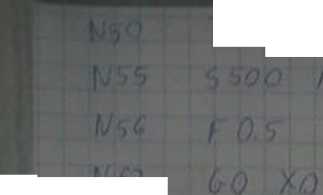 N50
N55 S500
N56 F0.5
G0 X0